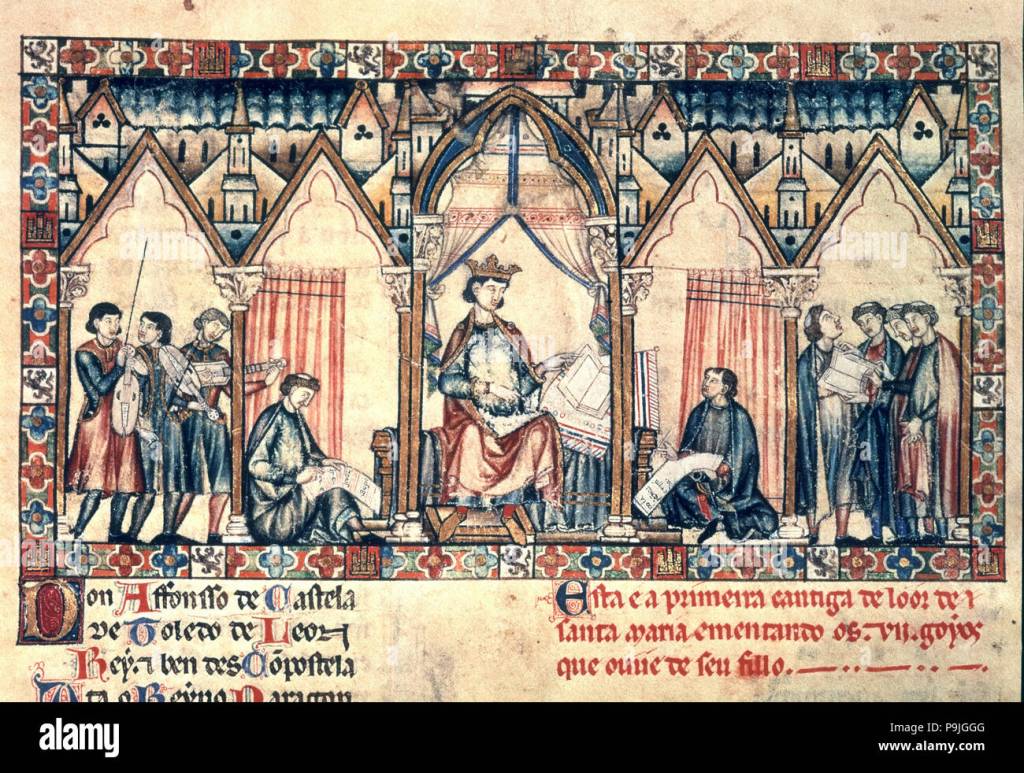 Don Affonsso de Castela
de Toledo de Leon
Rey. e ben des Conpostela
Ata o Reyno Daragon
Esta e a primeira cantiga de loor de
santa Maria ementando os. vii. goyos
que ouue de seu fillo.
alamy
Image ID: P9JGGG
www.alamy.com